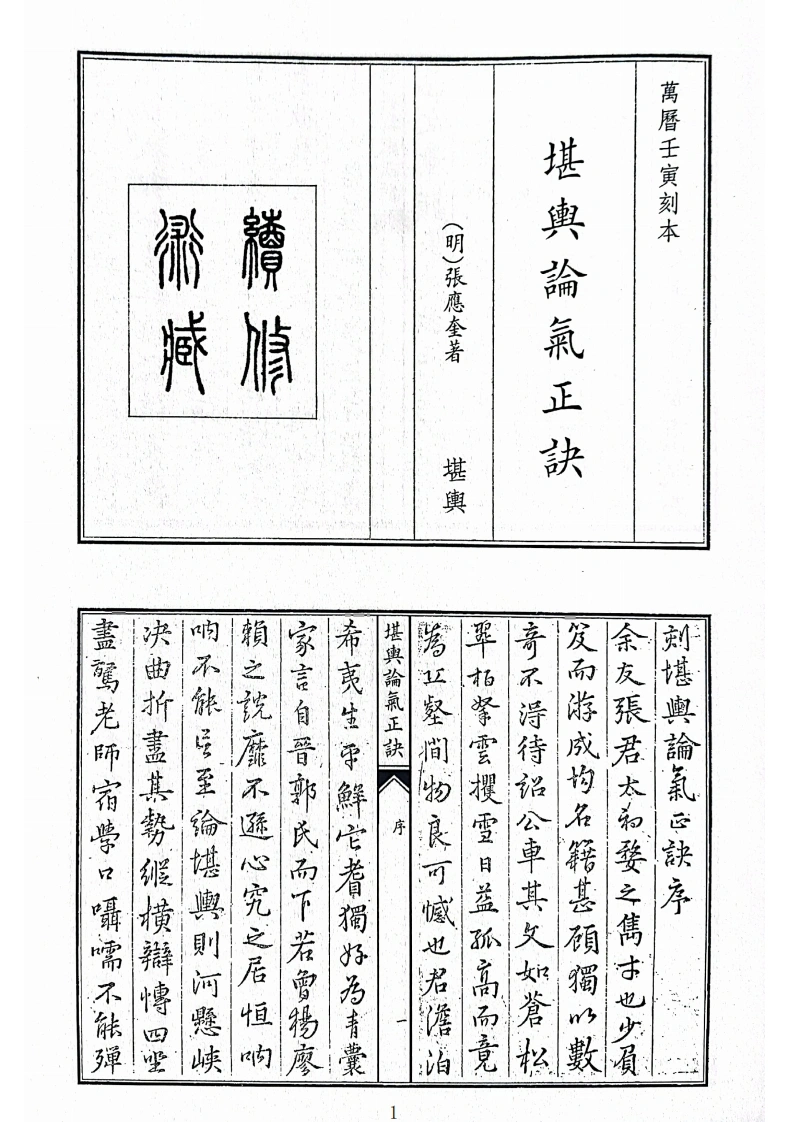 萬曆壬寅刻本
堪輿論氣正訣
(明)張應奎著 堪輿
續修
術藏
刻堪輿論氣正訣序
余友張君太初婺之雋才也少負
笈而游成均名籍甚顧獨以數
奇不淂待詔公車其文如蒼松
翠柏拏雲攫雪日益孤高而竟
為丘壑間物良可憾也君澹泊
堪輿論氣正訣 序 一
希夷生平鮮它耆獨好為青囊
家言自晉郭氏而下若曾楊廖
賴之說靡不遜心究之居恒呐
呐不能言至論堪輿則河懸峽
决曲折盡其勢縱橫辯博四坐
盡驚老師宿學口囁嚅不能殫
1